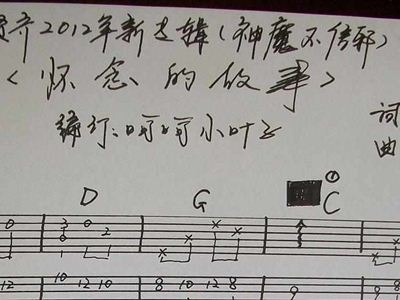 齐2012年新专辑(神魔不信邪)
<怀念的故事>
编订:呵呵小叶子
词
曲
D G ① C
0 3 0 0 2
12 10 12 10 8 10 12 8 9